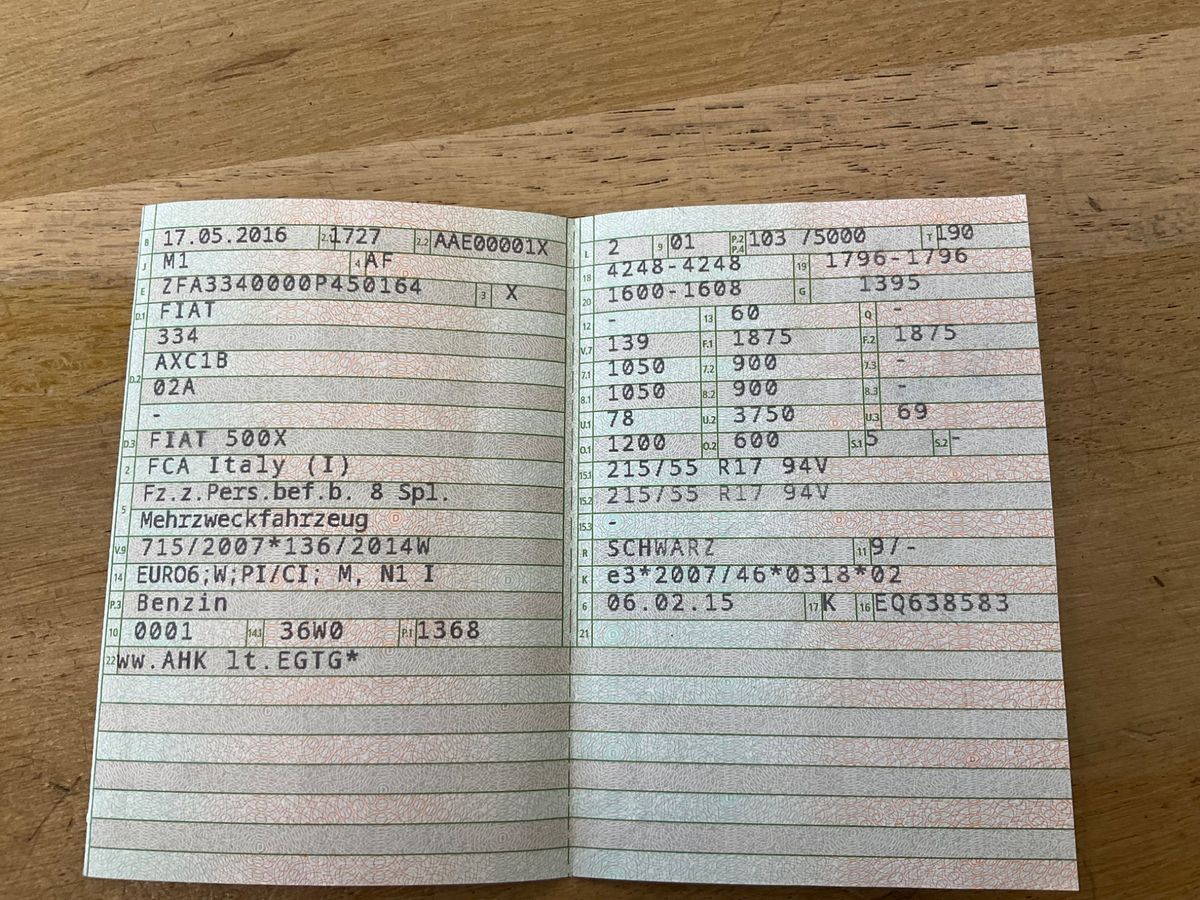 B 17.05.2016 2.1 1727 2.2 AAE00001X
J M1 4 AF
E ZFA3340000P450164 3 X
D.1 FIAT
334
D.2 AXC1B
02A
-
D.3 FIAT 500X
2 FCA Italy (I)
5 Fz.z.Pers.bef.b. 8 Spl.
Mehrzweckfahrzeug
V.9 715/2007*136/2014W
14 EURO6;W;PI/CI; M, N1 I
P.3 Benzin
10 0001 14.1 36W0 P.1 1368
22 ww.AHK lt.EGTG*
L 2 9 01 P.2 P.4 103 /5000 T 190
18 4248-4248 19 1796-1796
20 1600-1608 G 1395
12 - 13 60 Q -
V.7 139 F.1 1875 F.2 1875
7.1 1050 7.2 900 7.3 -
8.1 1050 8.2 900 8.3 -
U.1 78 U.2 3750 U.3 69
O.1 1200 O.2 600 S.1 5 S.2 -
15.1 215/55 R17 94V
15.2 215/55 R17 94V
15.3 -
R SCHWARZ 11 9/-
K e3*2007/46*0318*02
6 06.02.15 17 K 16 EQ638583
21